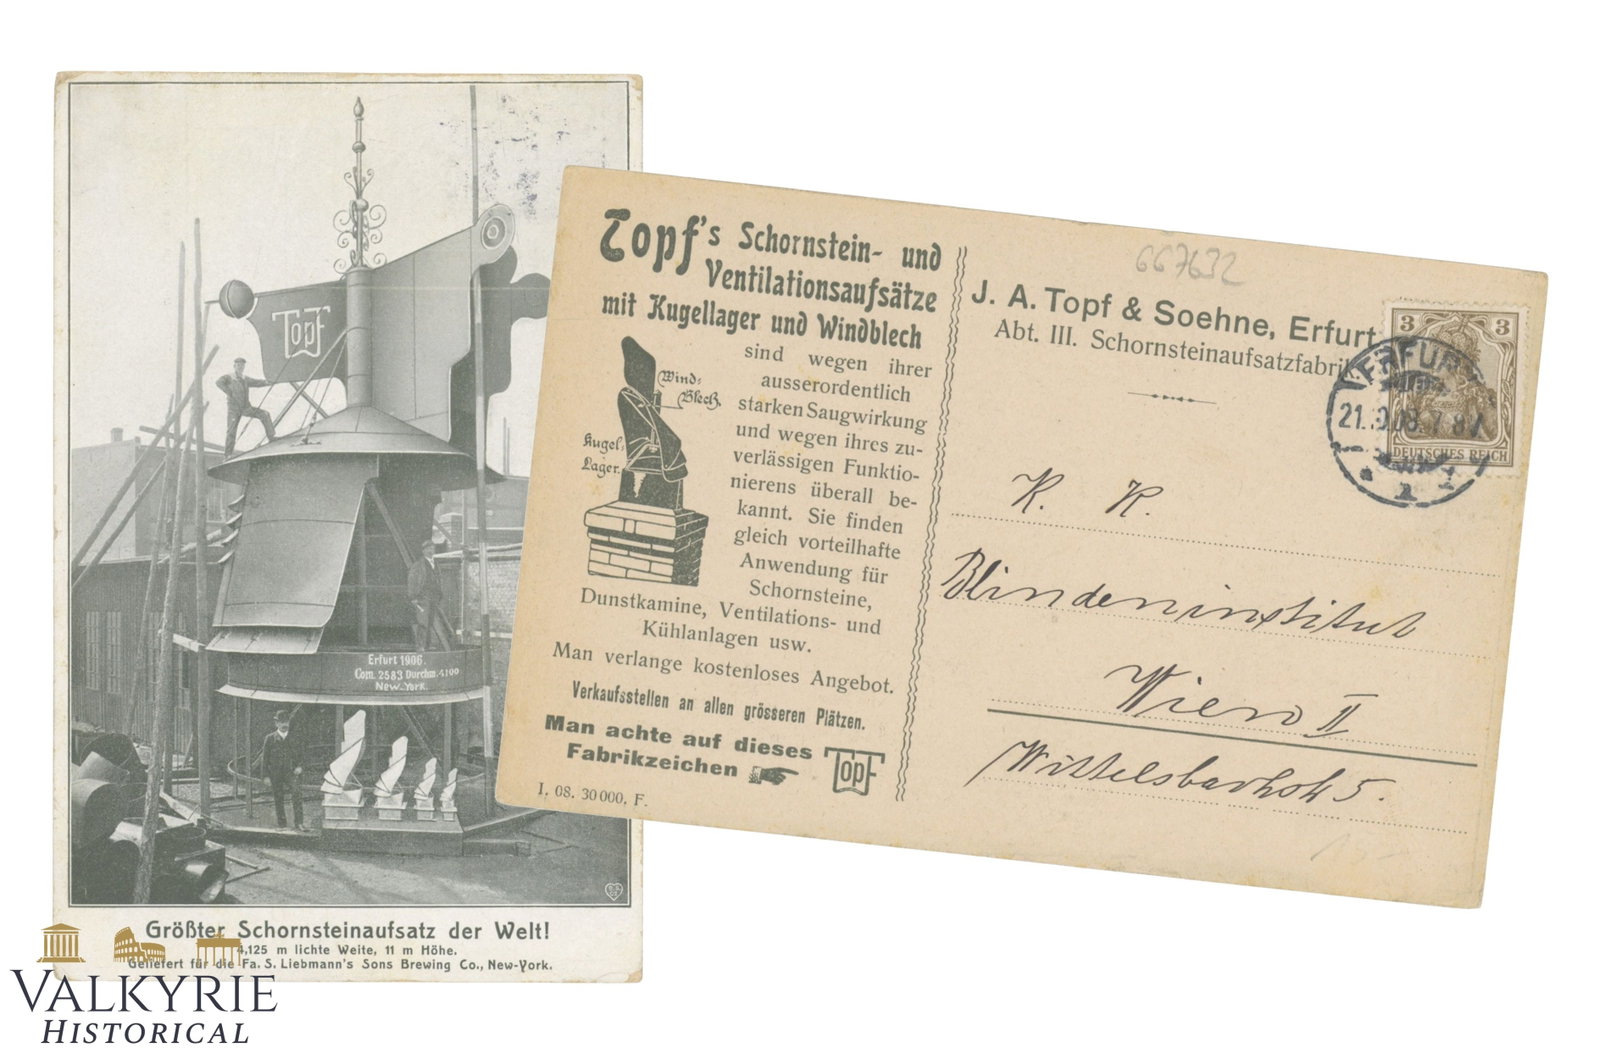 Topf
Erfurt 1906.
Com. 2583 Durchm. 4100
New-York.
Größter Schornsteinaufsatz der Welt!
4,125 m lichte Weite, 11 m Höhe.
Geliefert für die Fa. S. Liebmann's Sons Brewing Co., New-York.
VALKYRIE
HISTORICAL
Topf's Schornstein- und
Ventilationsaufsätze
mit Kugellager und Windblech
Wind-
Blech.
Kugel-
Lager.
sind wegen ihrer
ausserordentlich
starken Saugwirkung
und wegen ihres zu-
verlässigen Funktio-
nierens überall be-
kannt. Sie finden
gleich vorteilhafte
Anwendung für
Schornsteine,
Dunstkamine, Ventilations- und
Kühlanlagen usw.
Man verlange kostenloses Angebot.
Verkaufsstellen an allen grösseren Plätzen.
Man achte auf dieses
Fabrikzeichen
Topf
I. 08. 30000. F.
667632
J. A. Topf & Soehne, Erfurt
Abt. III. Schornsteinaufsatzfabrik.
3 3
DEUTSCHES REICH
ERFURT
K. K.
Blindeninstitut
Wien II
Wittelsbachstr 5.